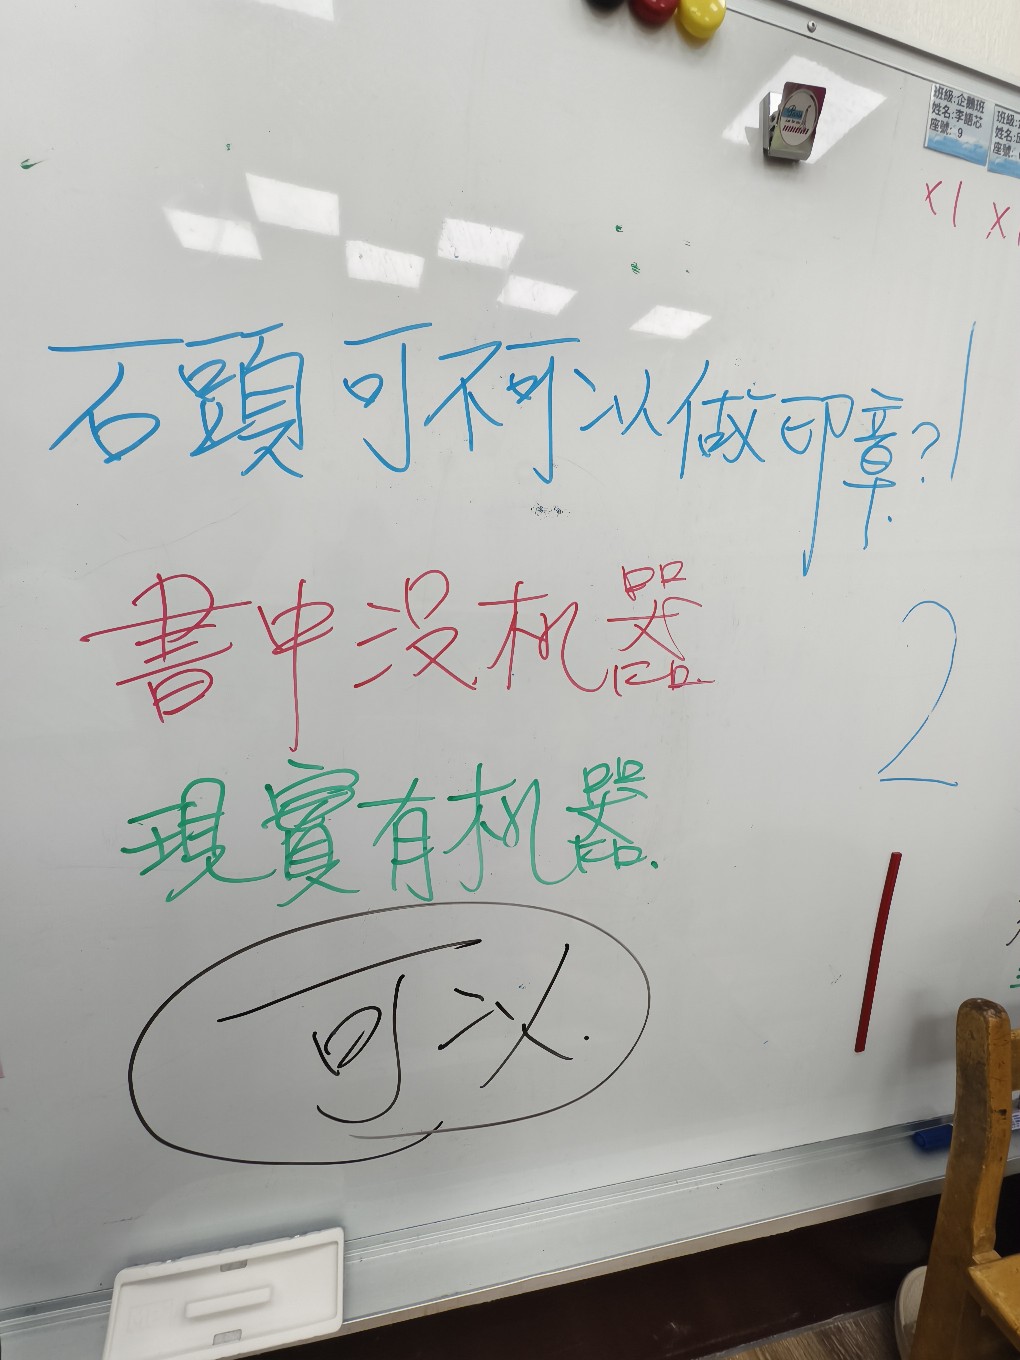 班級:企鵝班
姓名:李語芯
座號: 9
班級:
姓名:
座號:
x1 x
石頭可不可以做印章? 1
書中没机器. 2
現實有机器.
可以.